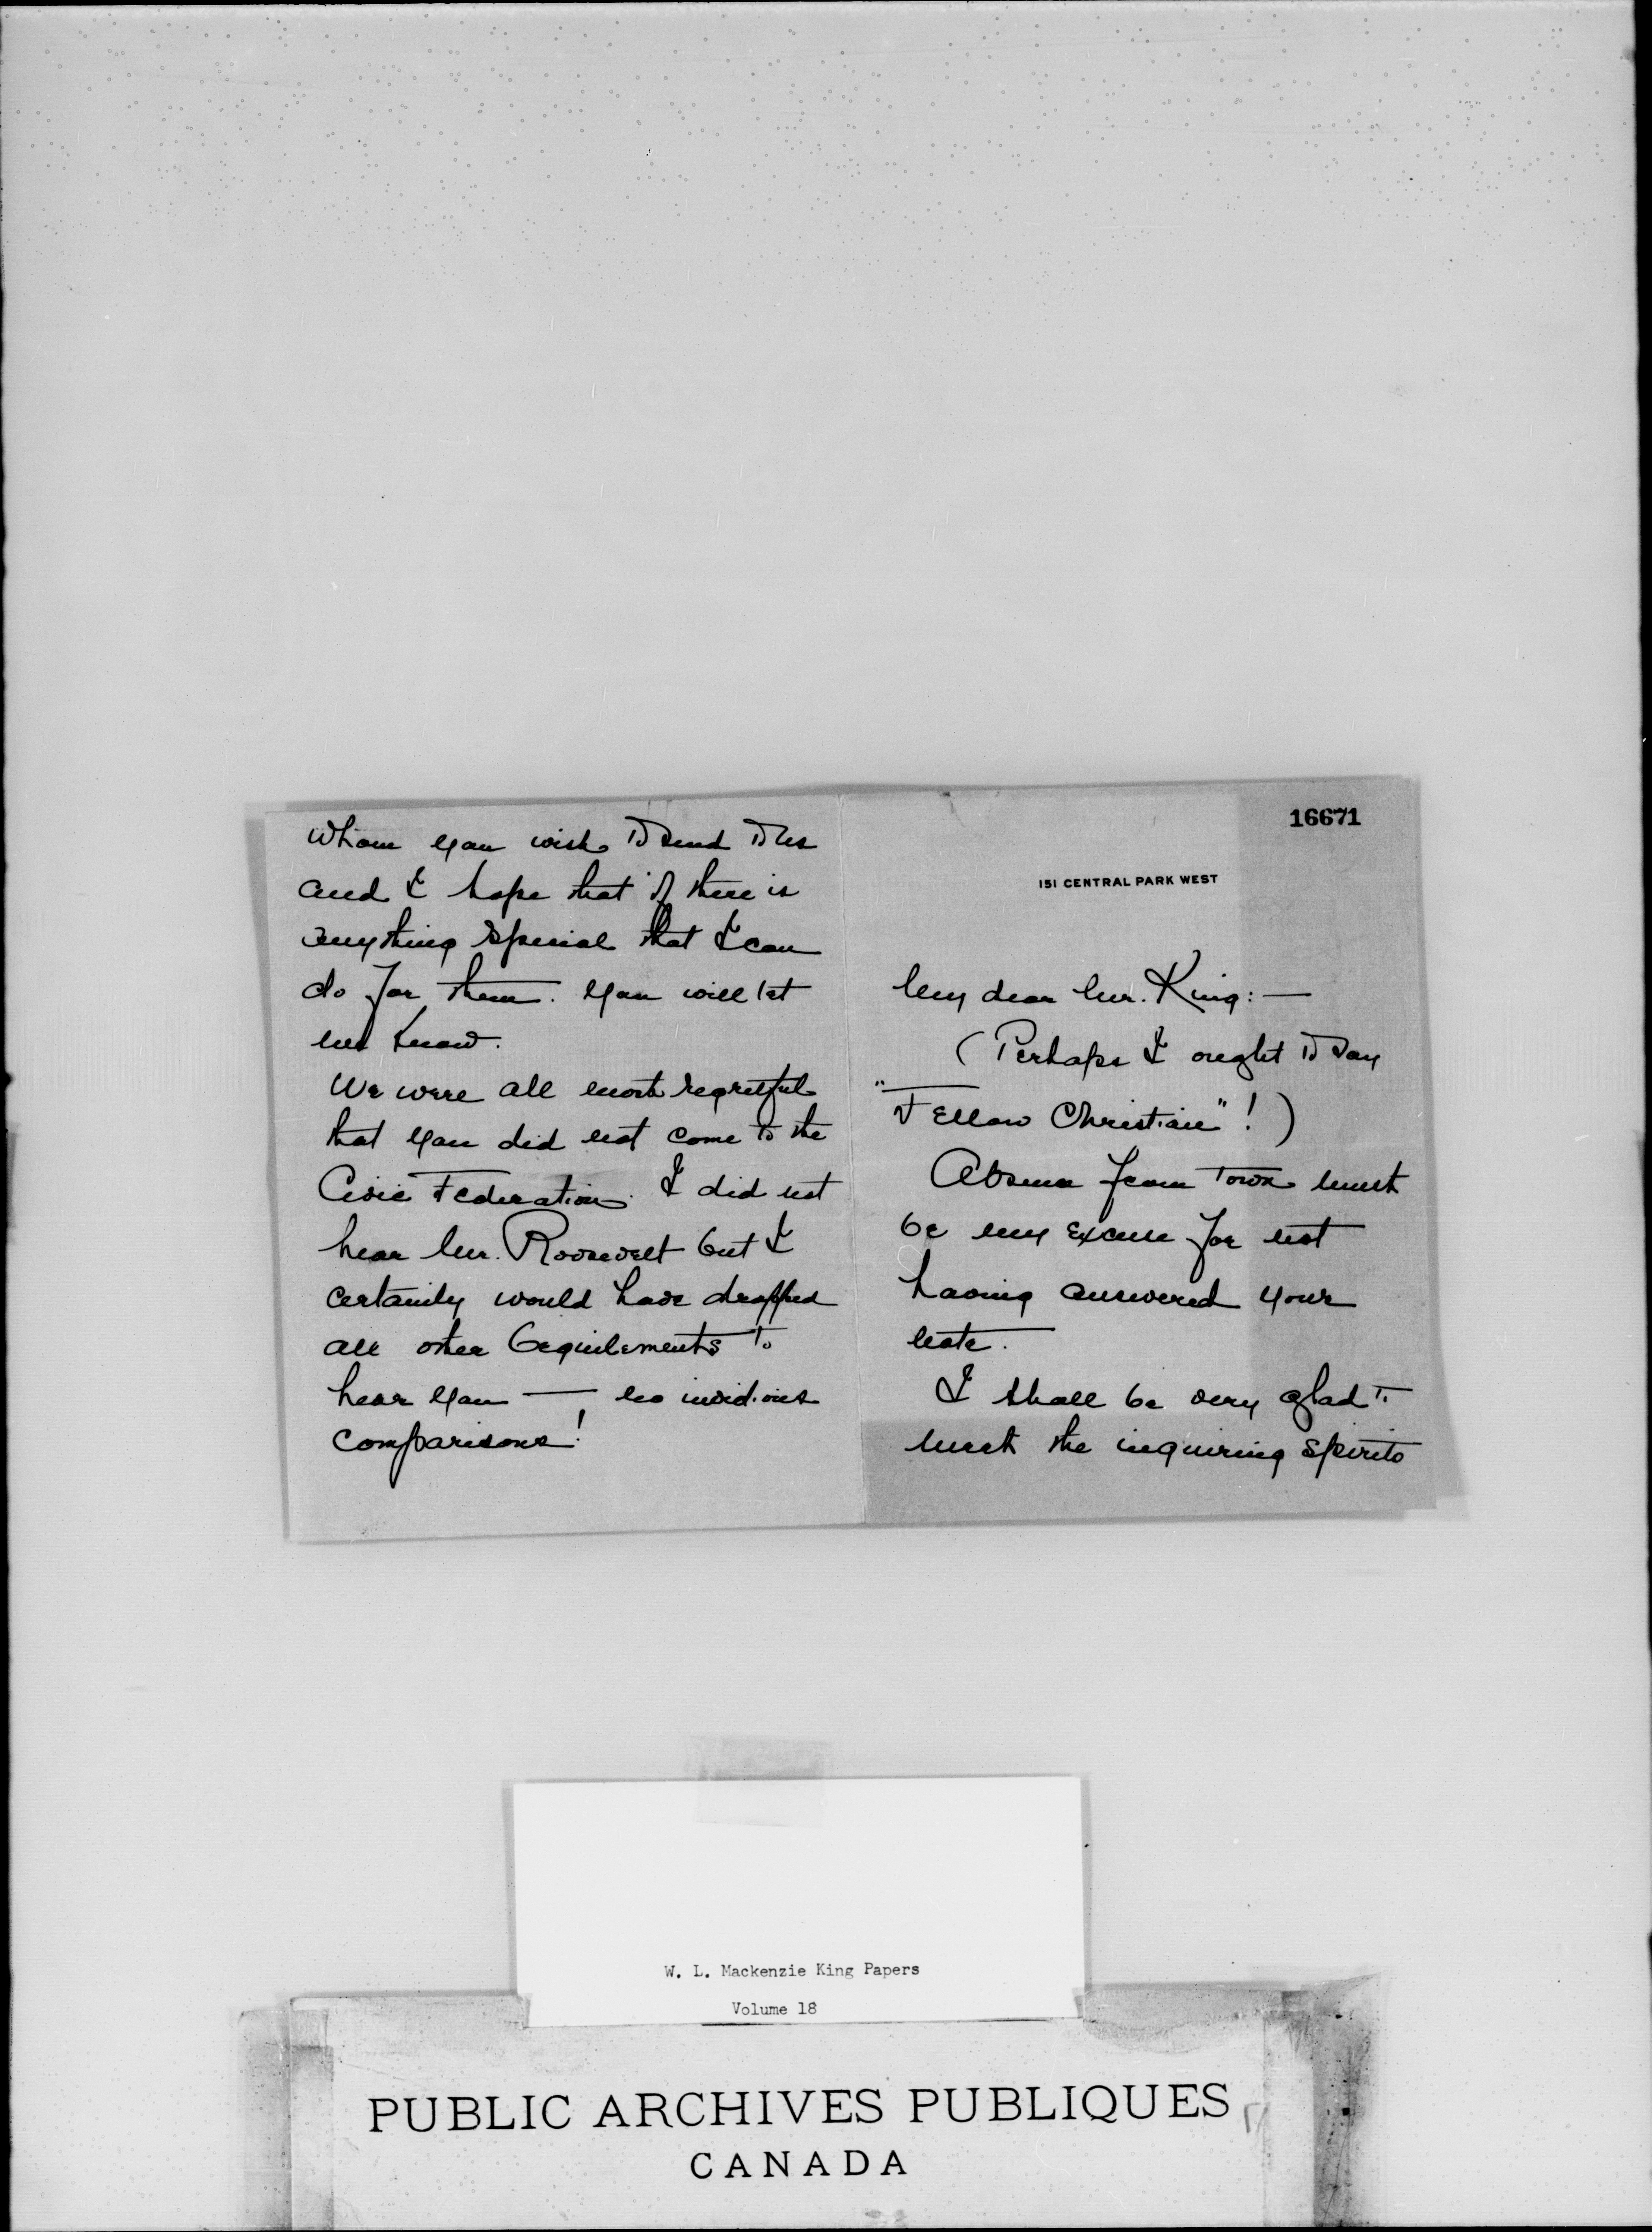 16671
151 CENTRAL PARK WEST
My dear Mr. King:—
(Perhaps I ought to say
"Fellow Christian"!)
Absence from town must
be my excuse for not
having answered your
note.
I shall be very glad to
meet the inquiring spirits
whom you wish to send to us
and I hope that if there is
anything special that I can
do for them. You will let
me know.
We were all most regretful
that you did not come to the
Civic Federation. I did not
hear Mr. Roosevelt but I
certainly would have dropped
all other beguilements to
hear you — no invidious
comparisons!
W. L. Mackenzie King Papers
Volume 18
PUBLIC ARCHIVES PUBLIQUES
CANADA